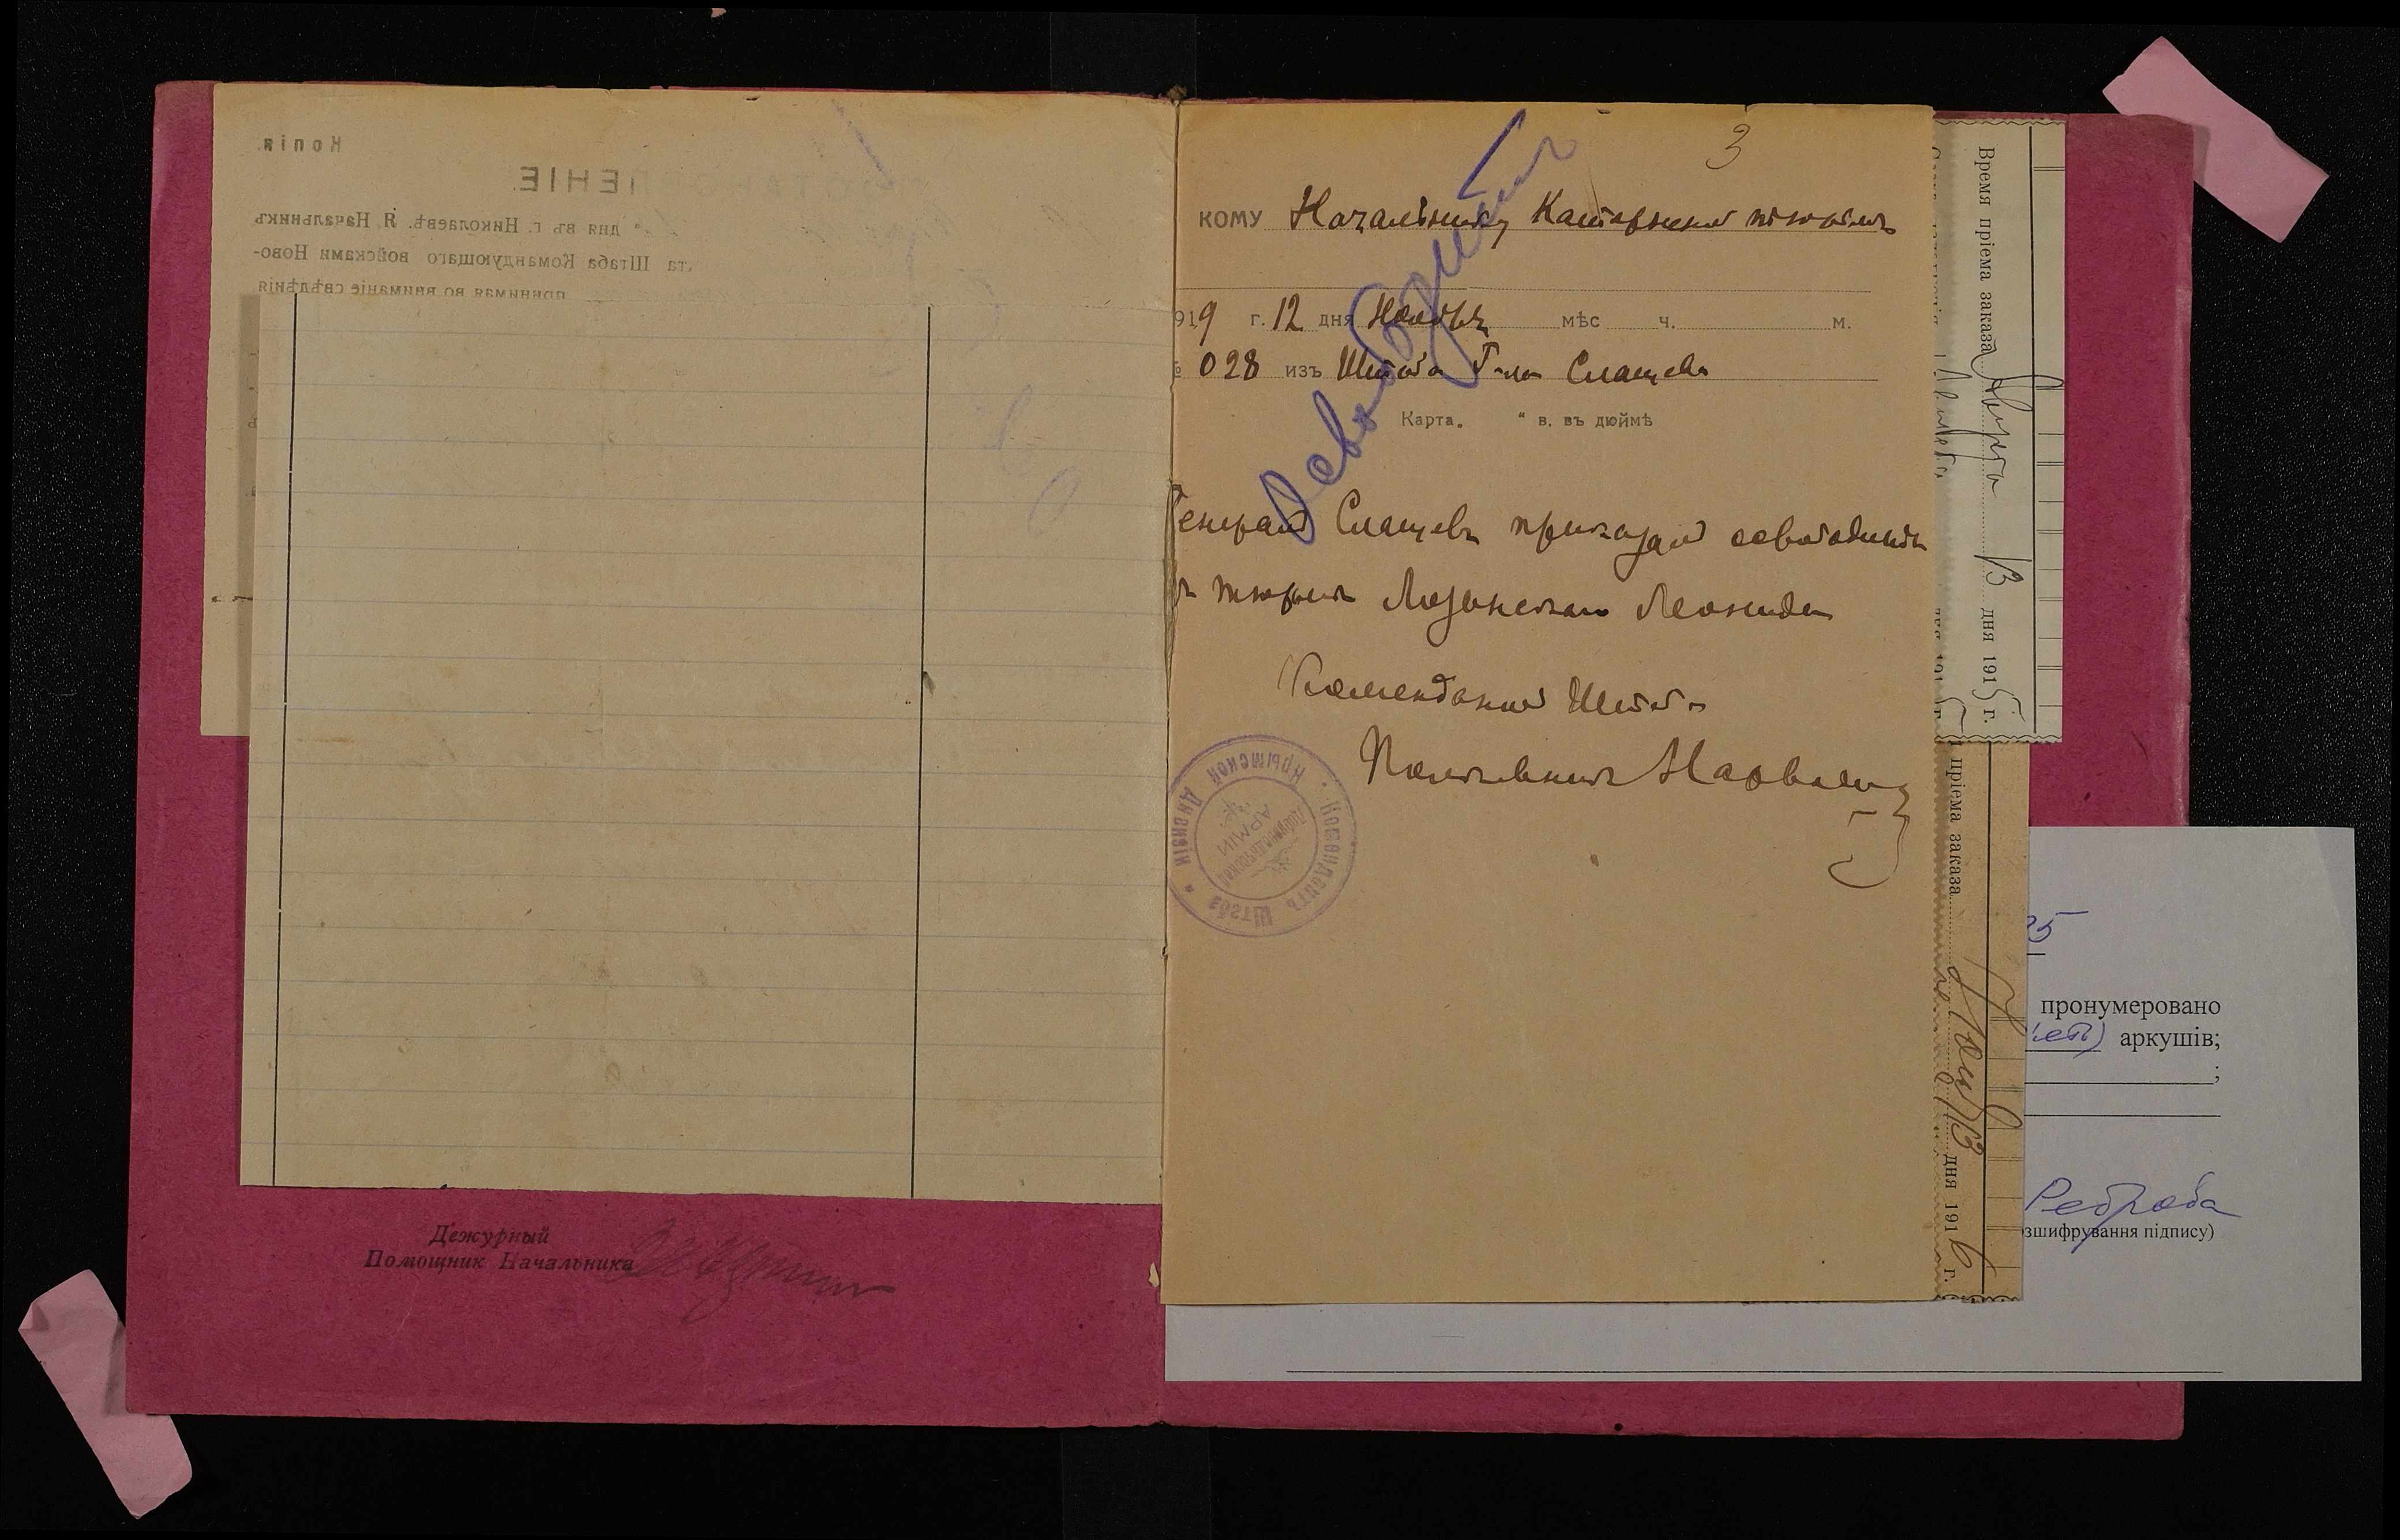 Копія.
ПОСТАНОВЛЕНІЕ.
дня въ г. Николаевѣ. Я, Начальникъ
Штаба Командующаго войсками Ново-
принимая во вниманіе свѣдѣнія
Дежурный
Помощник Начальника
3
Освободить
КОМУ Начальнику Каторжной тюрьмы
919 г. 12 дня Ноября мѣс ч. м.
№ 028 изъ Штаба Г-ла Слащева
Карта. " в. въ дюймѣ
Генерал Слащевъ приказал освободить
из тюрьмы Лозинскаго Леонида
Комендант Штаба
Полковник
Комендантъ Штаба Крымской Дивизіи
Добровольческой АРМІИ
Время пріема заказа Августа 13 дня 1915 г.
пріема заказа Юля 13 дня 1916 г.
25
пронумеровано
аркушів;
;
Реброва
зшифрування підпису)